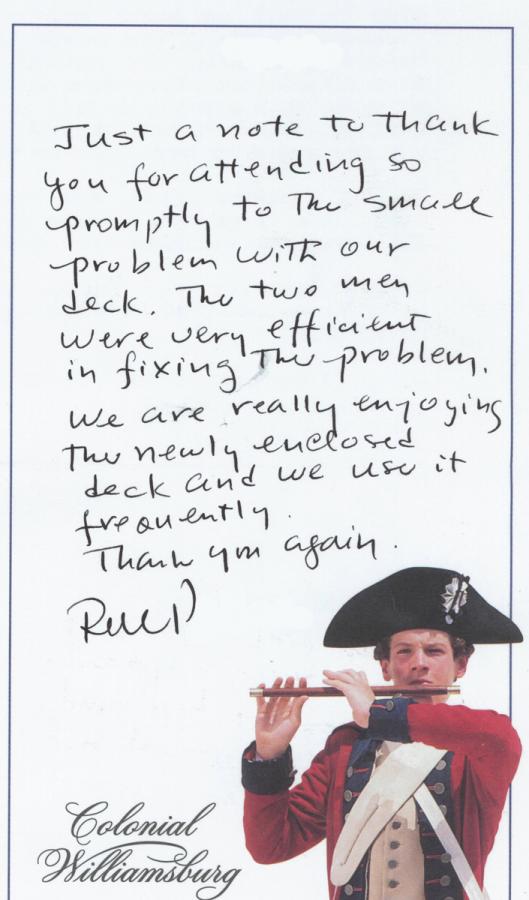 Just a note to thank
you for attending so
promptly to the small
problem with our
deck. The two men
were very efficient
in fixing the problem.
We are really enjoying
the newly enclosed
deck and we use it
frequently.
Thank you again.
Colonial
Williamsburg